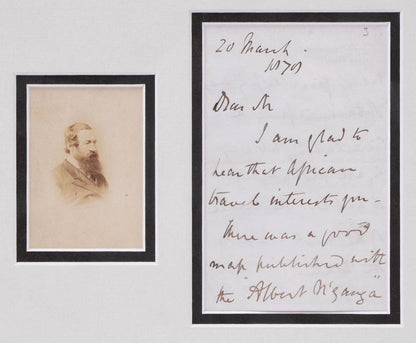 3
20 March.
1870
Dear Sir
I am glad to
hear that African
travel interests you –
There was a good
map published with
the "Albert N'yanza"